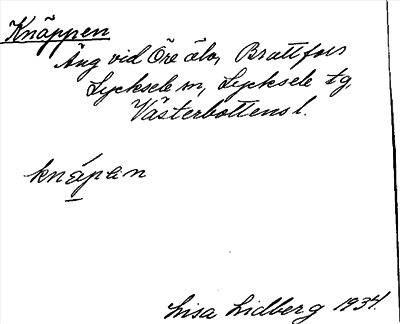 Knäppen
Äng vid Öre älv, Brattfors
Lycksele sn, Lycksele tg,
Västerbottens l.
knápan
Lisa Lidberg 1934.